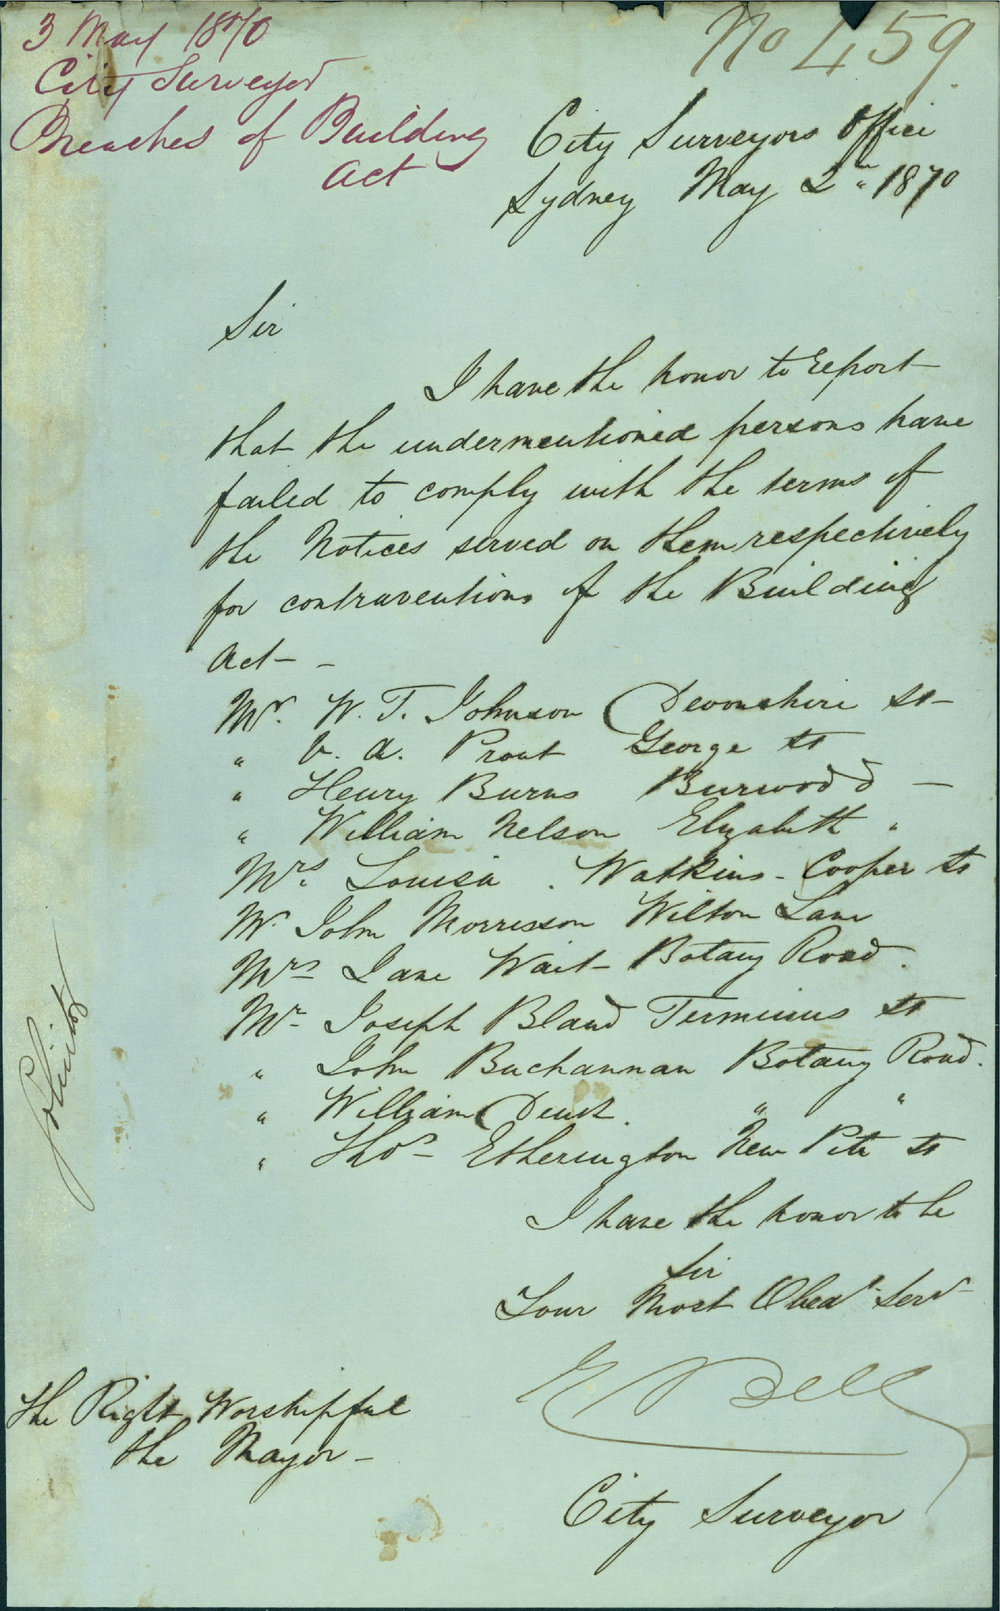 3 May 1870
City Surveyor
Breaches of Building
Act
No 459
City Surveyors Office
Sydney May 2nd 1870
Sir
I have the honor to report
that the undermentioned persons have
failed to comply with the terms of
the Notices served on them respectively
for contraventions of the Building
Act —
Mr. W. T. Johnson Devonshire St
" V. A. Prout George St
" Henry Burns Burwood —
" William Nelson Elizabeth "
Mrs. Louisa Watkins - Cooper St
Mr. John Morrisson Wilton Lane
Mrs Jane Wait - Botany Road.
Mr Joseph Bland Terminus St
" John Buchannan Botany Road.
" William Dent. " "
" Thos Etherington New Pitt St
I have the honor to be
Sir
Your Most Obedt Servt
E Bell
City Surveyor
The Right Worshipful
the Mayor —
Solicitor